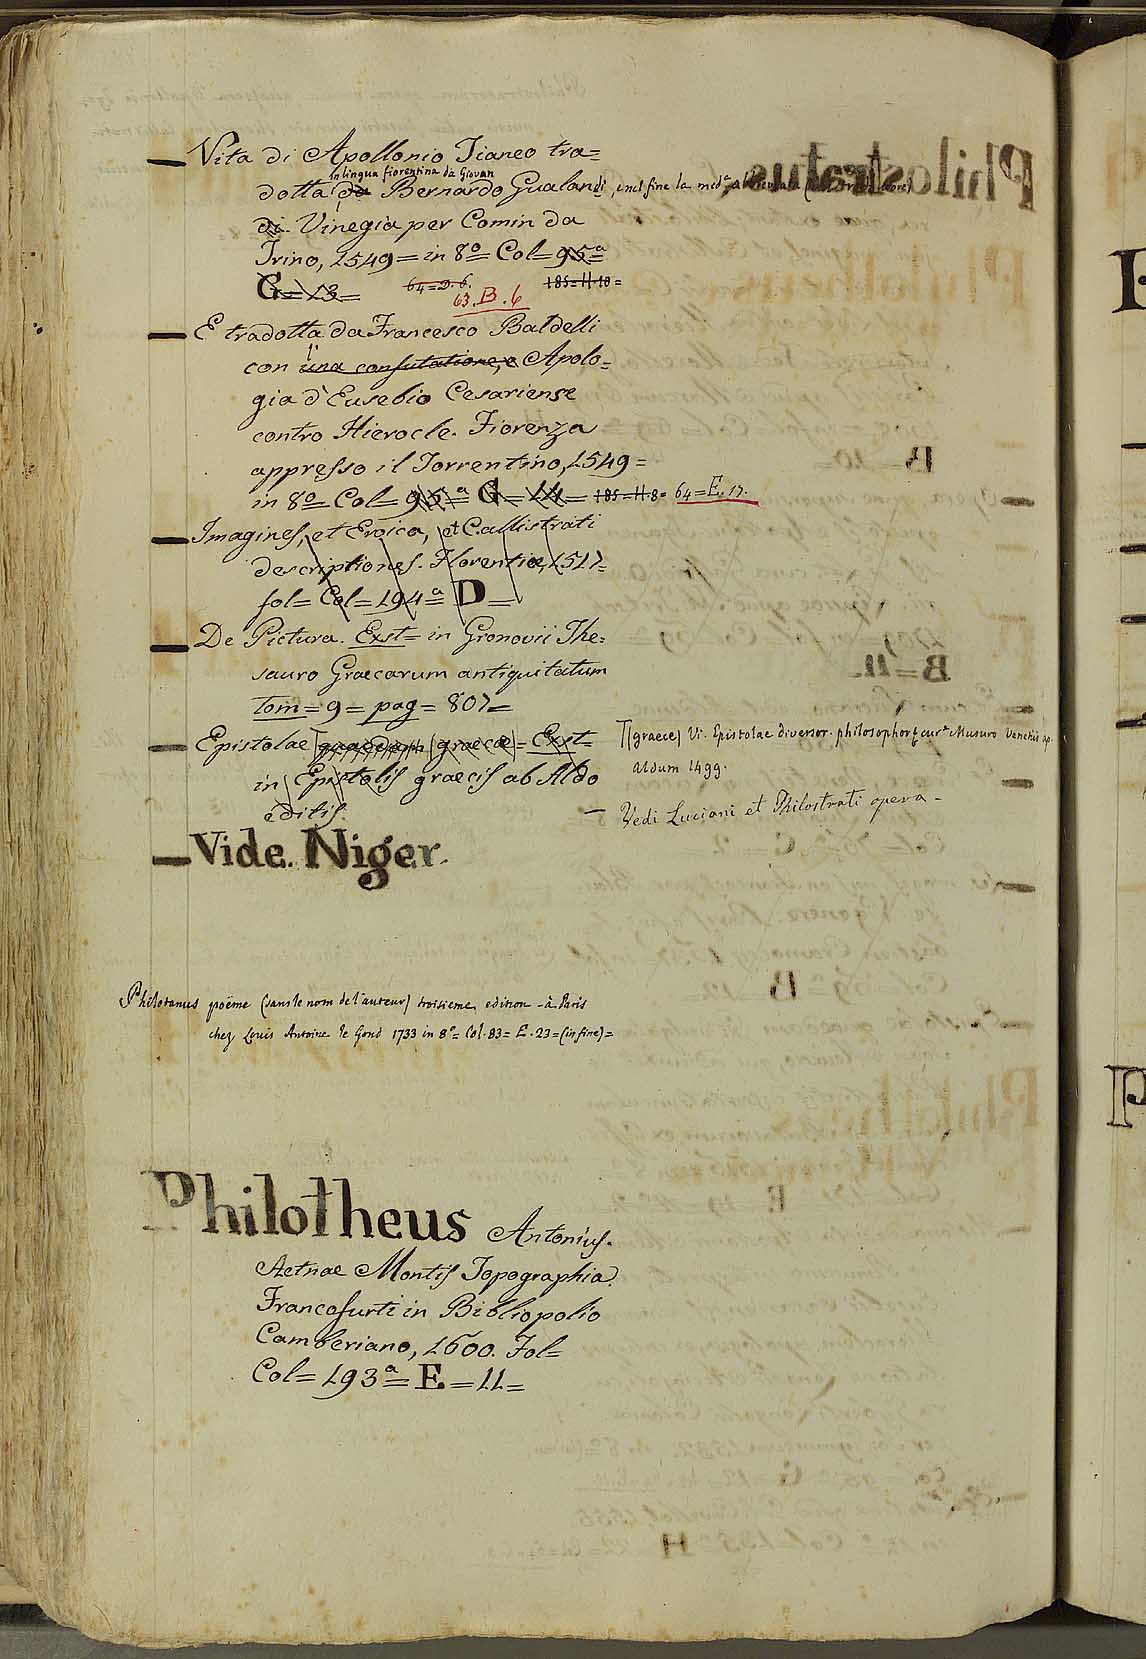 — Vita di Apollonio Tianeo tra=
in lingua fiorentina da Giovan
dotta da Bernardo Gualandi, e nel fine la
di. Vinegia per Comin da
Trino, 1549 = in 8º = Col = 95ª
G = 13 = 64 = D. 6. 185 = H. 10 =
63. B. 6
— E tradotta da Francesco Baldelli
con l' una confutatione, e Apolo=
gia d'Eusebio Cesariense
contro Hierocle. Fiorenza
appresso il Torrentino, 1549 =
in 8º = Col = 95ª = G = 14 = 185 = H. 8 = 64 = E. 17.
— Imagines, et Eroica, et Callistrati
descriptiones. Florentiae, 1517 =
fol = Col = 194ª = D =
— De Pictura. Exst = in Gronovii The=
sauro Graecarum antiquitatum
tom = 9 = pag = 807 =
— Epistolae (graecae) = Exst =
in Epistolis graecis ab Aldo
editis.
(graece) Vi. Epistolae diversor. philosophor. curᵉ Musuro Venetiis ap.
Aldum 1499.
— Vedi Luciani et Philostrati opera -
— Vide. Niger.
Philotanus poëme (sans le nom de l'auteur) troisieme edition - à Paris
chez Louis Antoine le Gond 1733 in 8º = Col. 83 = E. 23 = (in fine) =
Philotheus Antonius.
Aetnae Montis Topographia.
Francofurti in Bibliopolio
Camberiano, 1600. Fol =
Col = 193ª = E = 11 =